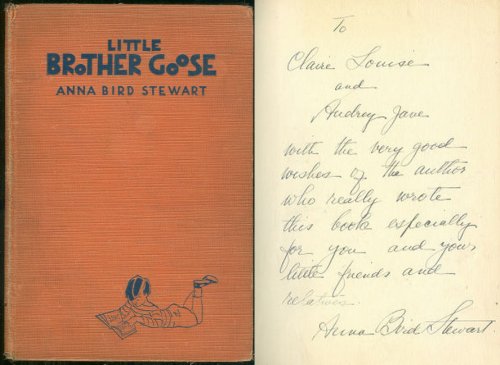 LITTLE
BROTHER GOOSE
ANNA BIRD STEWART
To
Claire Louise
and
Audrey Jane
with the very good
wishes of the author
who really wrote
this book especially
for you and your
little friends and
relatives.
Anna Bird Stewart.